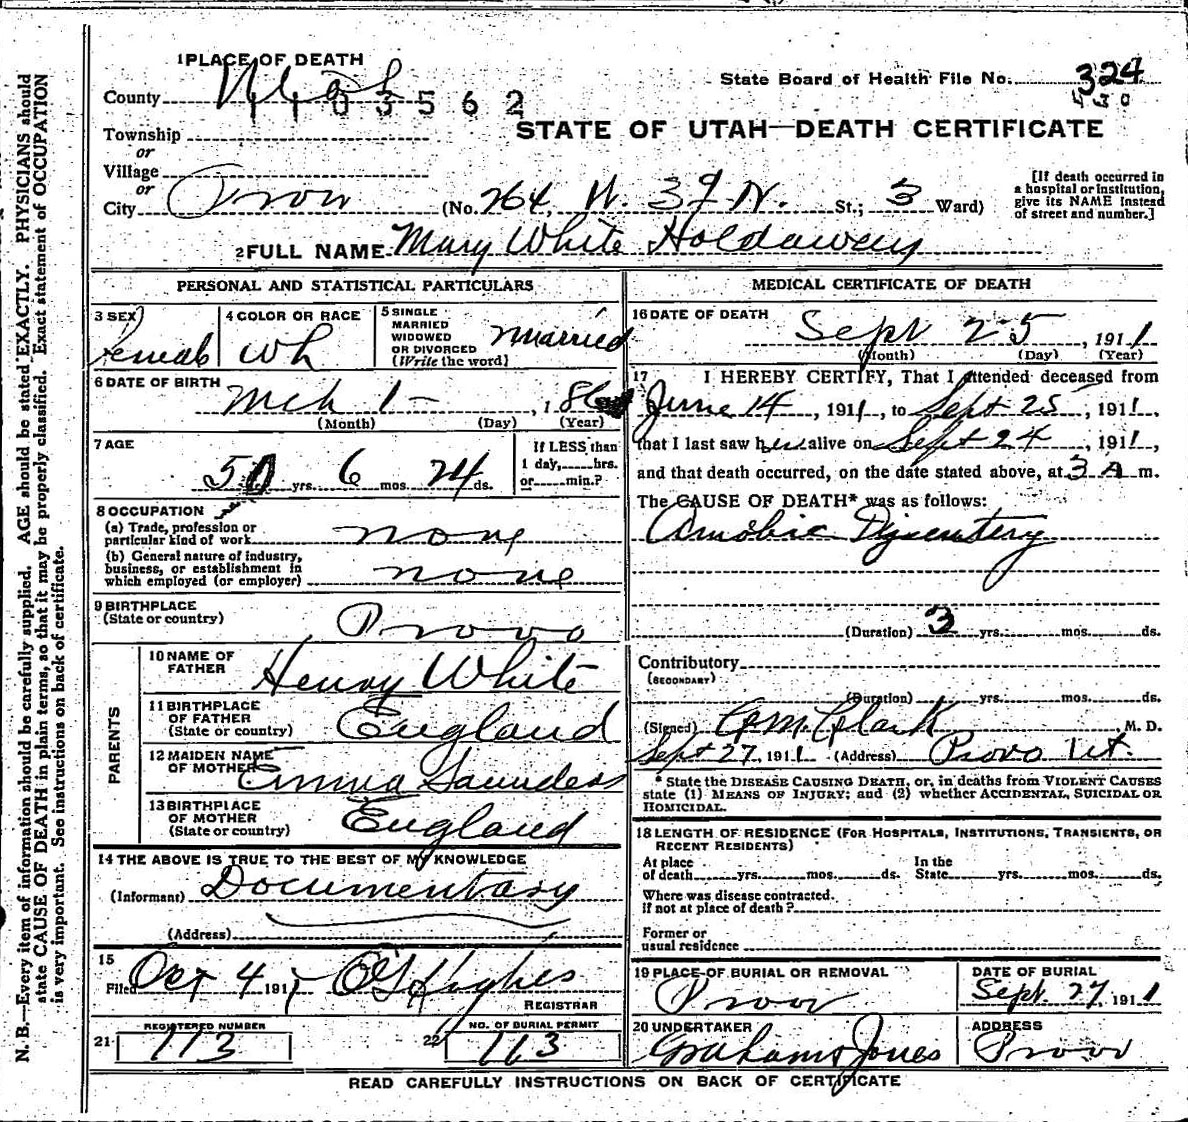 1 PLACE OF DEATH
State Board of Health File No. 324
430
County Utah
1103562
Township
or
STATE OF UTAH—DEATH CERTIFICATE
Village
or
City Provo (No. 264, W. 3d N. St.; 3 Ward)
[If death occurred in
a hospital or institution,
give its NAME instead
of street and number.]
2 FULL NAME Mary White Holdaway
PERSONAL AND STATISTICAL PARTICULARS
3 SEX Female
4 COLOR OR RACE Wh
5 SINGLE
MARRIED
WIDOWED
OR DIVORCED
(Write the word) Married
6 DATE OF BIRTH Mch 1 - , 186
(Month) (Day) (Year)
7 AGE
50 yrs. 6 mos. 24 ds.
If LESS than
1 day,......hrs.
or......min.?
8 OCCUPATION
(a) Trade, profession or
particular kind of work none
(b) General nature of industry,
business, or establishment in
which employed (or employer) none
9 BIRTHPLACE
(State or country) Provo
PARENTS
10 NAME OF
FATHER Henry White
11 BIRTHPLACE
OF FATHER
(State or country) England
12 MAIDEN NAME
OF MOTHER Emma Saunders
13 BIRTHPLACE
OF MOTHER
(State or country) England
14 THE ABOVE IS TRUE TO THE BEST OF MY KNOWLEDGE
(Informant) Documentary
(Address)
15
Filed Oct 4 191 Hughes
REGISTRAR
21 REGISTERED NUMBER
113
22 NO. OF BURIAL PERMIT
113
MEDICAL CERTIFICATE OF DEATH
16 DATE OF DEATH
Sept 25, 1911
(Month) (Day) (Year)
17 I HEREBY CERTIFY, That I attended deceased from
June 14, 1911, to Sept 25, 1911,
that I last saw her alive on Sept 24, 1911,
and that death occurred, on the date stated above, at 3 A m.
The CAUSE OF DEATH* was as follows:
Amobic Dysentery
(Duration) 3 yrs. mos. ds.
Contributory
(SECONDARY)
(Duration) yrs. mos. ds.
(Signed) Clark M. D.
Sept 27, 1911 (Address) Provo Ut.
* State the DISEASE CAUSING DEATH, or, in deaths from VIOLENT CAUSES
state (1) MEANS OF INJURY; and (2) whether ACCIDENTAL, SUICIDAL OR
HOMICIDAL.
18 LENGTH OF RESIDENCE (FOR HOSPITALS, INSTITUTIONS, TRANSIENTS, OR
RECENT RESIDENTS)
At place
of death yrs. mos. ds. In the
State yrs. mos. ds.
Where was disease contracted.
If not at place of death?
Former or
usual residence
19 PLACE OF BURIAL OR REMOVAL
Provo
DATE OF BURIAL
Sept. 27, 1911
20 UNDERTAKER
Graham & Jones
ADDRESS
Provo
READ CAREFULLY INSTRUCTIONS ON BACK OF CERTIFICATE
N. B.—Every item of information should be carefully supplied. AGE should be stated EXACTLY. PHYSICIANS should
state CAUSE OF DEATH in plain terms, so that it may be properly classified. Exact statement of OCCUPATION
is very important. See instructions on back of certificate.